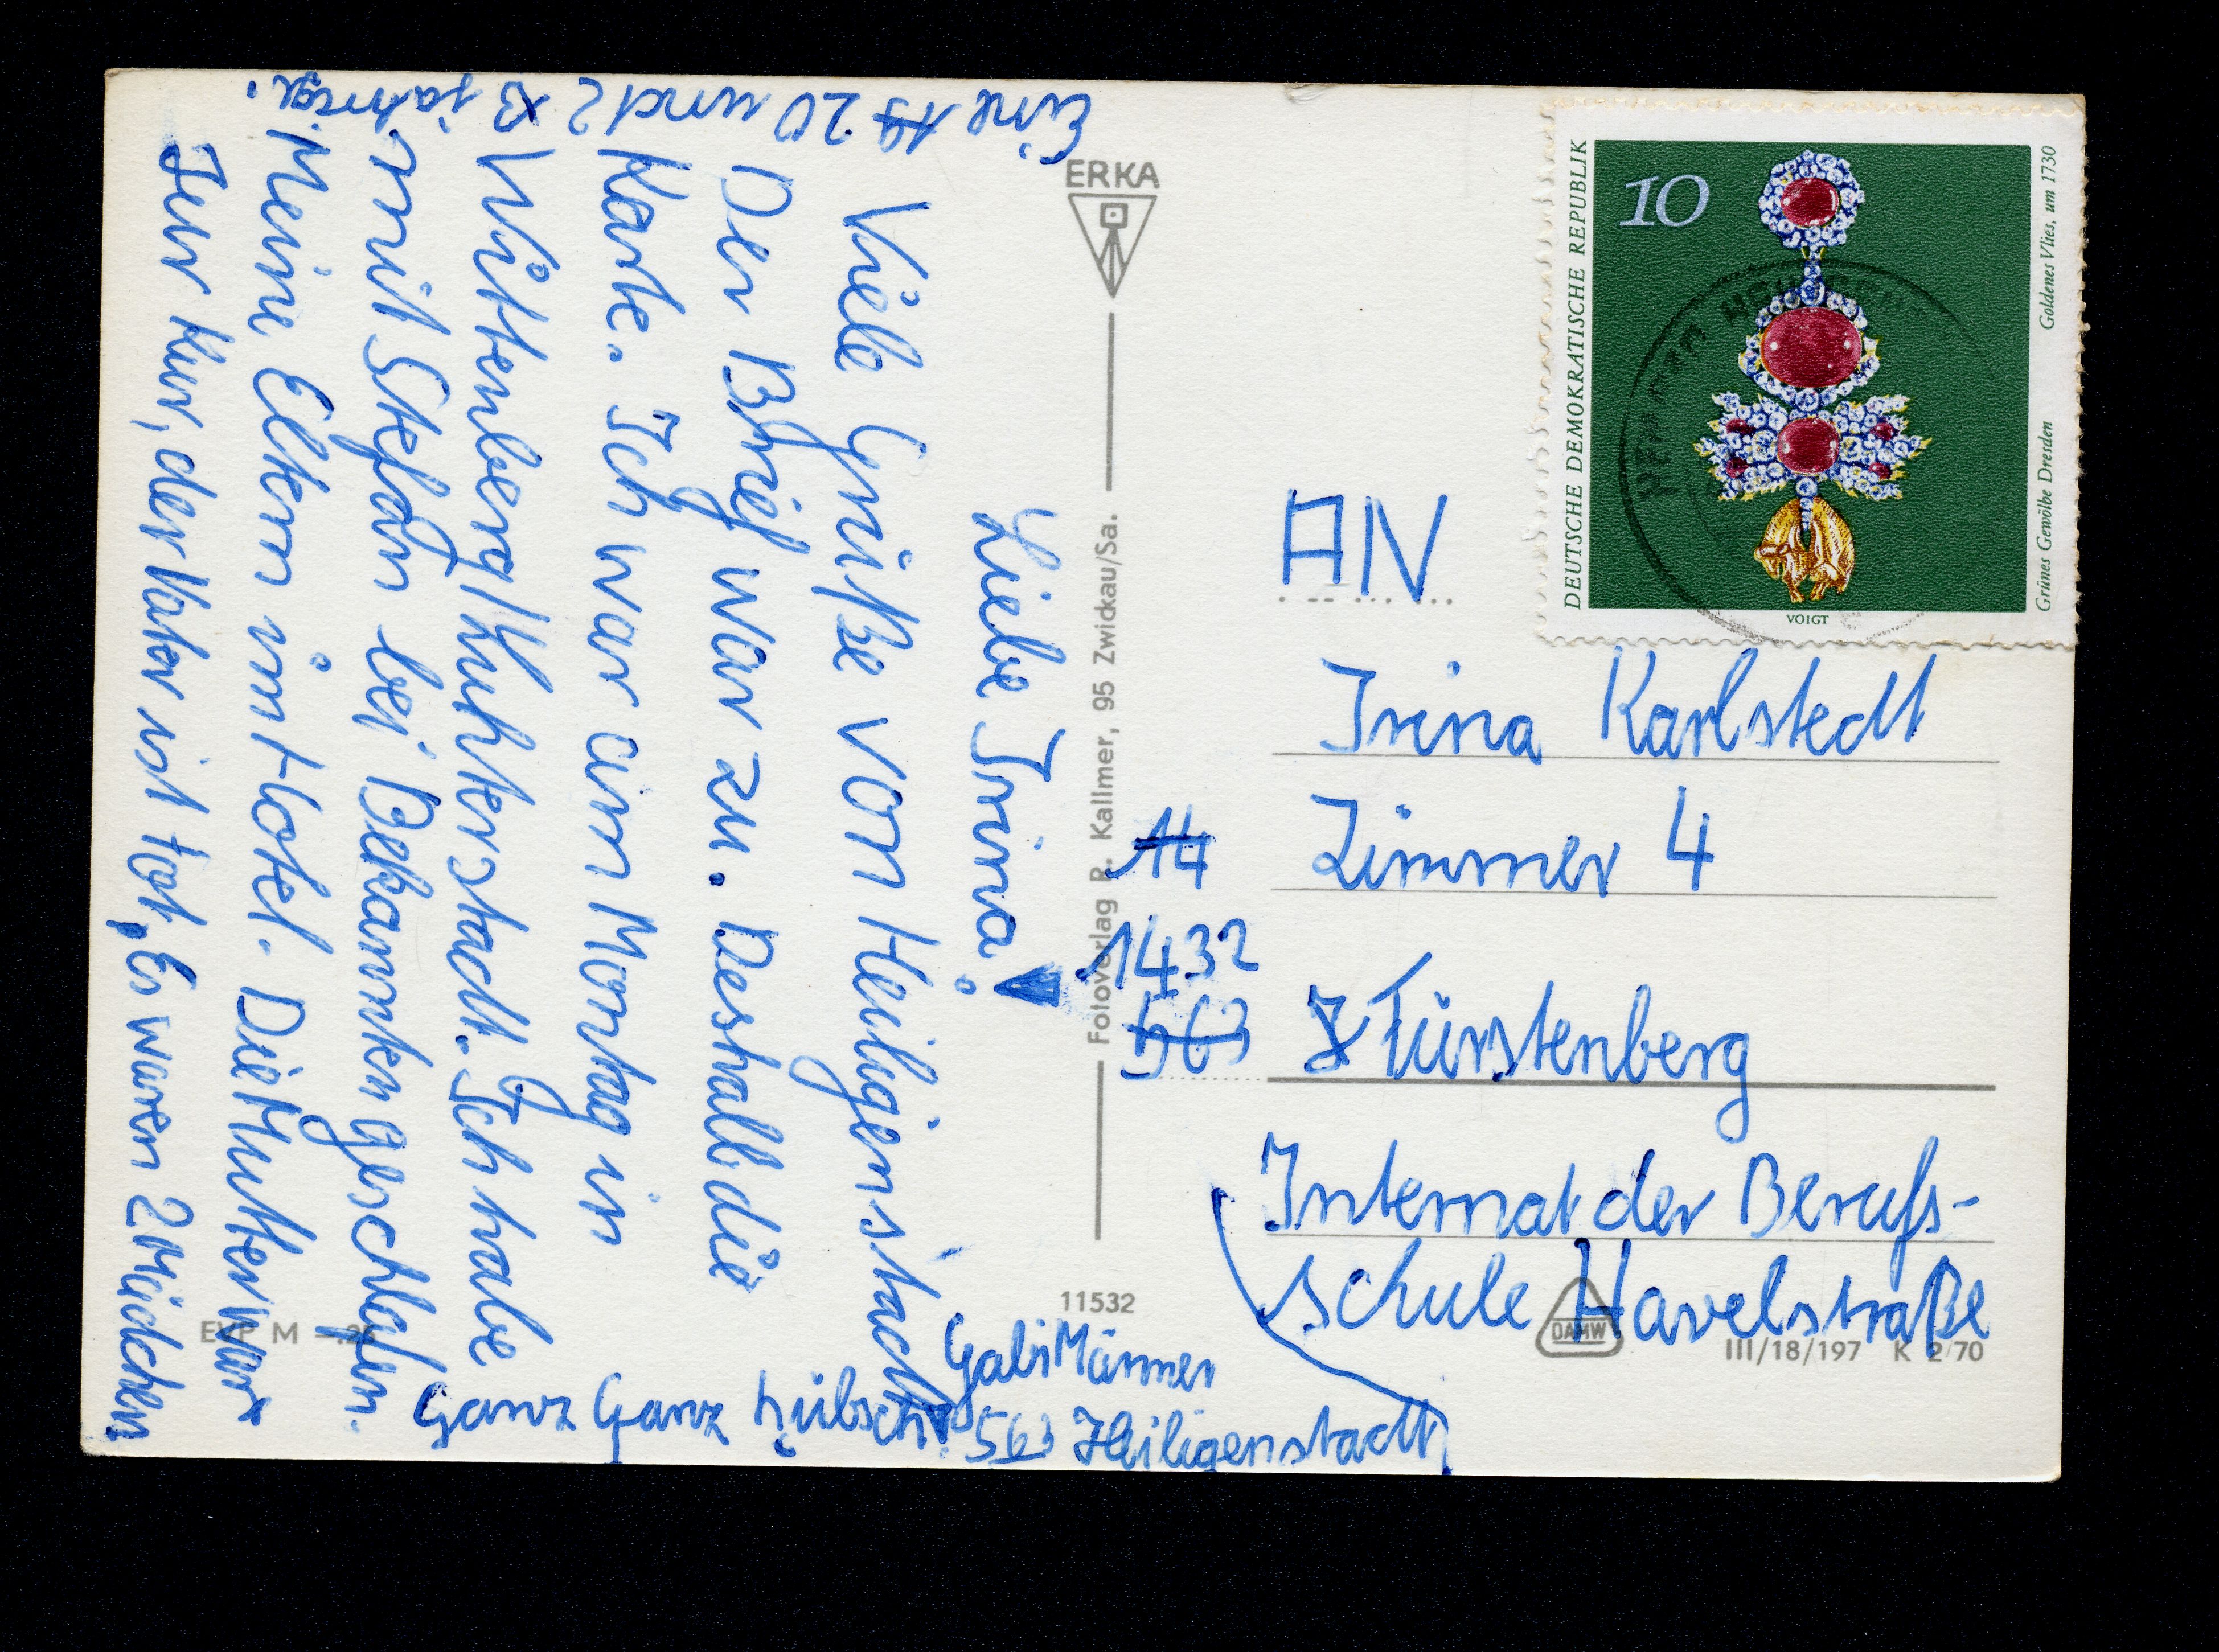 Liebe Irina!
Viele Grüße von Heiligenstadt
Der Brief war zu. Deshalb die
Karte. Ich war am Montag in
Wittenberg/Kuhterstadt. Ich habe
mit Stefan bei Bekannten geschlafen.
Meine Eltern im Hotel. Die Mutter war x
zur Kur, der Vater ist tot. Es waren 2 Mädchen
Eine 19 20 und 2 x3 jährige.
Ganz Ganz hübsch!
Gabi Männer
563 Heiligenstadt
ERKA
Fotoverlag R. Kallmer, 95 Zwickau/Sa.
11532
EVP M -.25
DEUTSCHE DEMOKRATISCHE REPUBLIK
10
Goldenes Vlies, um 1730
Grünes Gewölbe Dresden
VOIGT
AN
Irina Karlstedt
14 Zimmer 4
1432
563 Fürstenberg
Internat der Berufs-
schule Havelstraße
DAMW
III/18/197 K 2/70